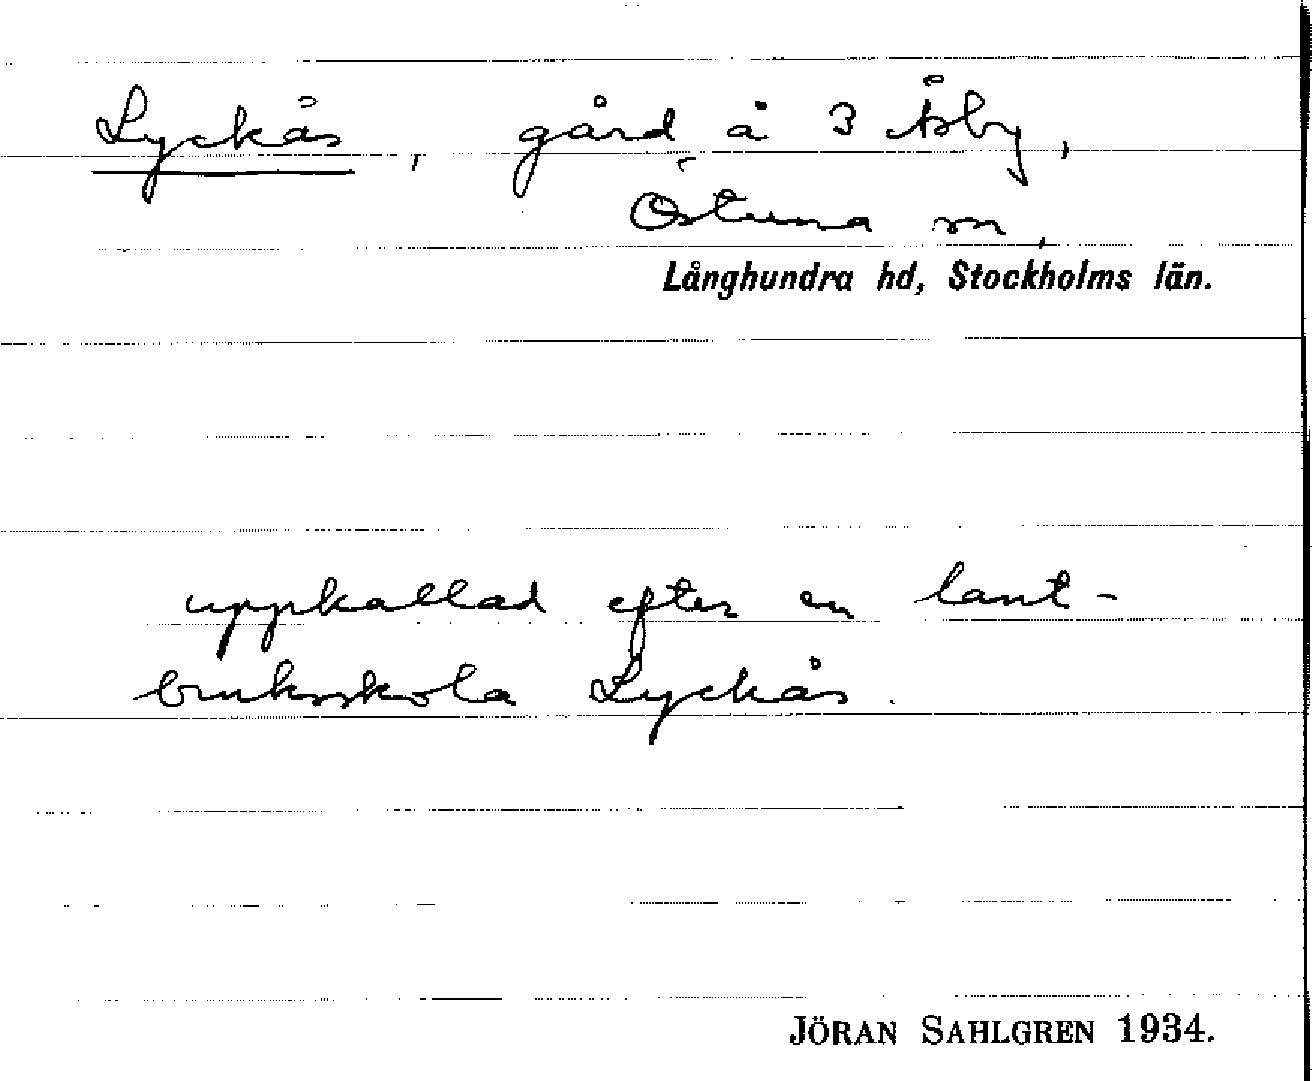 Lyckås, gård å 3 Åsby,
Östuna sn,
Långhundra hd, Stockholms län.
uppkallad efter en lant-
bruksskola Lyckås.
JÖRAN SAHLGREN 1934.